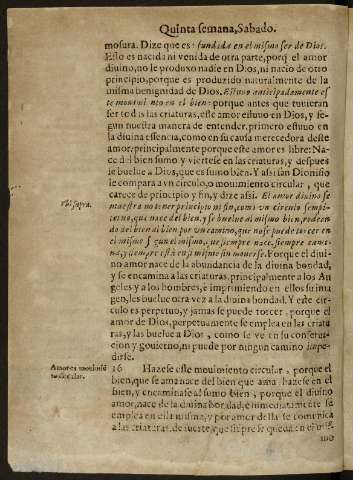 Quinta semana, Sabado.
mosura. Dize que es: fundida en el mismo ser de Dios.
Esto es nacida ni venida de otra parte, porq̃ el amor
diuino, no le produxo nadie en Dios, ni nacio de otro
principio, porque es produzido naturalmente de la
misma benignidad de Dios. Estuuo anticipadamente es
te en el bien: porque antes que tuuieran
ser todas las criaturas, este amor estuuo en Dios, y se-
gun nuestra manera de entender, primero estuuo en
la diuina essencia, como en su causa merecedora deste
amor, principalmente porque este amor es libre: Na-
ce del bien sumo y viertese en las criaturas, y despues
se buelue a Dios, que es sumo bien. Y assi san Dionisio
le compara a vn circulo, o mouimiento circular, que
carece de principio y fin, y dize assi. El amor diuino se
muestra no tener principio ni fin, como vn circulo sempi-
terno, que nace del bien, y se buelue al mismo bien, rodean
do del bien al bien por vn camino, que no se puede torcer en
el mismo, segun el mismo, que siempre nace, siempre cami-
na, y siempre está en si mismo sin mouerse. Porque el diui-
no amor nace de la abundancia de la diuina bondad,
y se encamina a las criaturas, principalmente a los An
geles y a los hombres, e imprimiendo en ellos su ima
gen, les buelue otra vez a la diuina bondad. Y este cir-
culo es perpetuo, y jamas se puede torcer, porque el
amor de Dios, perpetuamente se emplea en las criatu
ras, y las buelue a Dios, como se ve en su conserua-
cion y gouierno, ni puede por ningun camino impe-
dirse.
16 Hazese este mouimiento circular, porque el
bien, que se ama nace del bien que ama, hazese en el
bien, y encaminase al sumo bien, porque el diuino
amor, nace de la diuina bondad, e inmediatamente se
emplea en ella misma, y por amor della se comunica
a las criaturas, de suerte, que siẽpre se queda en el mis
mo
Vbi supra.
Amor es mouimiẽ
to circular.